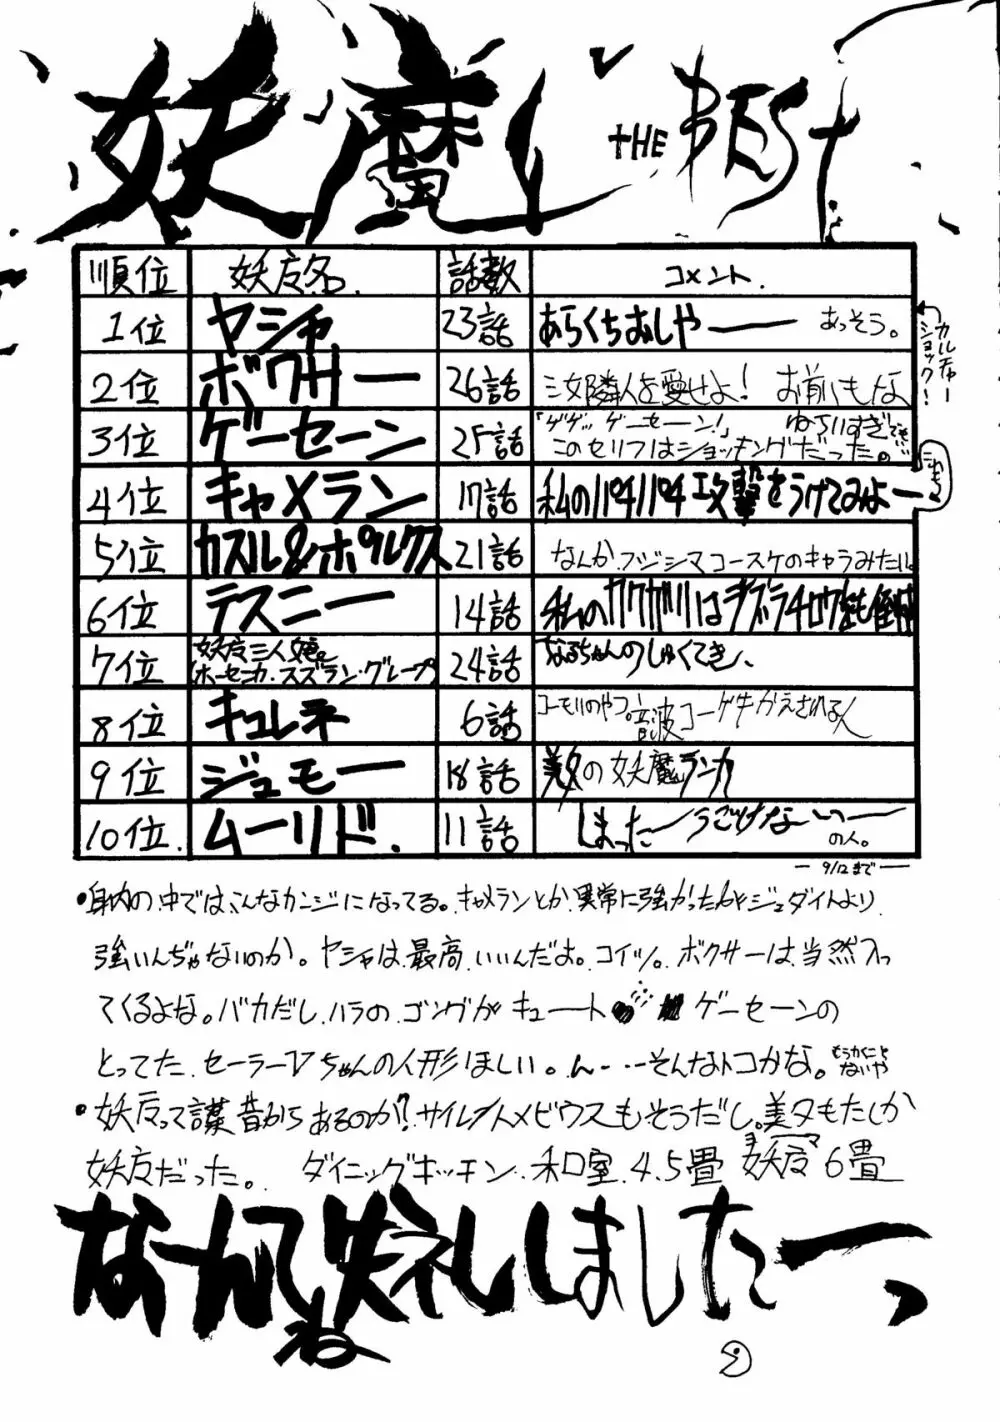 妖魔 THE BEST
順位 妖广名. 話数 コメント.
1位 ヤシャ 23話 あらくちおしやー あっそう。
カルチャーショック!
2位 ボクサー 26話 汝隣人を愛せよ! お前にもな
3位 ゲーセーン 25話 「ゲゲッ ゲーセーン!」
このセリフはショッキングだった。
4位 キャメラン 17話 私のパチパチ攻撃をうけてみよー
5位 カスル&ポルクス 21話 なんかフジシマコースケのキャラみたい。
6位 テスニー 14話 私の
7位 妖广三人娘。
ホーセンカ・スズラン・グレープ 24話 なるちゃんのしゅくてき、
8位 キュレネ 6話 コーモリのやつ。音波コーゲキかえされる人
9位 ジュモー 18話 美夕の妖魔ランカ
10位. ムーリド. 11話 しまったーうごけないっー の人。
― 9/12まで ―
•身内の中では、こんなカンジになってる。キャメランとか異常に強かったわとジュダイトより
強いんぢゃないのか。ヤシャは最高、いいんだよ。コイツ。ボクサーは当然入っ
てくるよな。バカだし、ハラの ゴングが キュート ゲーセーンの
とってた セーラーVちゃんの人形ほしい。ん・・・そんなトコかな。もうかくことないや
•妖广って謀昔からあるのか!?サイレントメビウスもそうだし。美夕もたしか
妖广だった。 ダイニングキッチン 和室 4.5畳 妖广 6畳
ヨーマ
なーんてね 失礼しましたーっ